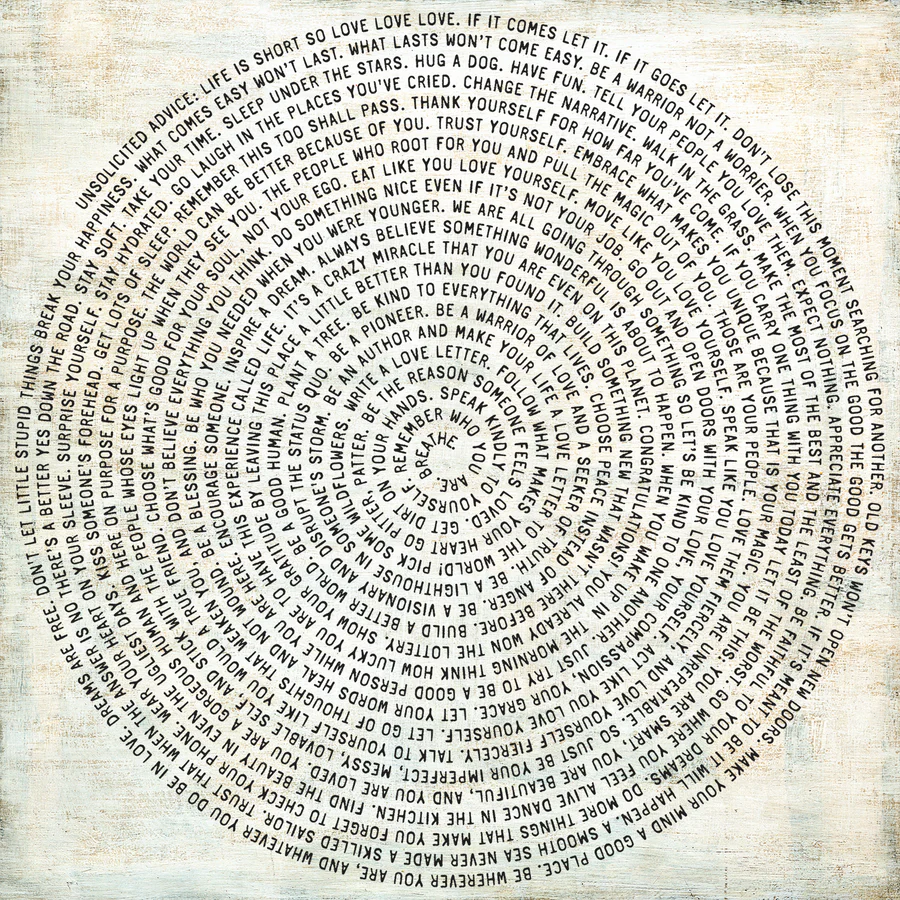 UNSOLICITED ADVICE: LIFE IS SHORT SO LOVE LOVE LOVE. IF IT COMES LET IT. IF IT GOES LET IT. DON'T LOSE THIS MOMENT SEARCHING FOR ANOTHER. OLD KEYS WON'T OPEN NEW DOORS. MAKE YOUR MIND A GOOD PLACE. BE WHEREVER YOU ARE, AND WHATEVER YOU DO BE IN LOVE. DREAMS ARE FREE. DON'T LET LITTLE STUPID THINGS BREAK YOUR HAPPINESS. WHAT COMES EASY WON'T LAST. WHAT LASTS WON'T COME EASY. BE A WARRIOR NOT A WORRIER. WHEN YOU FOCUS ON THE GOOD THE GOOD GETS BETTER. IF IT'S MEANT TO BE IT WILL HAPPEN. A SMOOTH SEA NEVER MADE A SKILLED SAILOR. TRUST THAT WHEN THE ANSWER IS NO THERE'S A BETTER YES DOWN THE ROAD. STAY SOFT. TAKE YOUR TIME. SLEEP UNDER THE STARS. HUG A DOG. HAVE FUN. TELL YOUR PEOPLE YOU LOVE THEM. EXPECT NOTHING. APPRECIATE EVERYTHING. BE FAITHFUL TO YOUR DREAMS. DO MORE THINGS THAT MAKE YOU FORGET TO CHECK YOUR PHONE. WEAR YOUR HEART ON YOUR SLEEVE. SURPRISE YOURSELF. STAY HYDRATED. GO LAUGH IN THE PLACES YOU'VE CRIED. CHANGE THE NARRATIVE. WALK IN THE GRASS. MAKE THE MOST OF THE BEST AND THE LEAST OF THE WORST. GO WHERE YOU FEEL ALIVE DANCE IN THE KITCHEN. FIND THE BEAUTY IN EVEN THE UGLIEST DAYS. KISS SOMEONE'S FOREHEAD. GET LOTS OF SLEEP. REMEMBER THIS TOO SHALL PASS. THANK YOURSELF FOR HOW FAR YOU'VE COME. IF YOU CARRY ONE THING WITH YOU TODAY LET IT BE THIS: YOU ARE SMART, YOU ARE BEAUTIFUL, AND YOU ARE LOVED. YOU ARE A GORGEOUS HUMAN AND HERE ON PURPOSE FOR A PURPOSE. THE WORLD CAN BE BETTER BECAUSE OF YOU. TRUST YOURSELF. EMBRACE WHAT MAKES YOU UNIQUE BECAUSE THAT IS YOUR MAGIC. YOU ARE UNREPEATABLE. SO JUST BE YOUR IMPERFECT, MESSY, LOVABLE SELF, AND STICK WITH THE PEOPLE WHOSE EYES LIGHT UP WHEN THEY SEE YOU. THE PEOPLE WHO ROOT FOR YOU AND PULL THE MAGIC OUT OF YOU. THOSE ARE YOUR PEOPLE. LOVE THEM FIERCELY. AND LOVE YOURSELF FIERCELY. TALK TO YOURSELF LIKE YOU WOULD A TRUE FRIEND AND CHOOSE WHAT'S GOOD FOR YOUR SOUL, NOT YOUR EGO. EAT LIKE YOU LOVE YOURSELF. MOVE LIKE YOU LOVE YOURSELF. SPEAK LIKE YOU LOVE YOURSELF. ACT LIKE YOU LOVE YOURSELF. LET GO OF THOUGHTS THAT WEAKEN YOU AND DON'T BELIEVE EVERYTHING YOU THINK. DO SOMETHING NICE EVEN IF IT'S NOT YOUR JOB. GO OUT AND OPEN DOORS WITH YOUR LOVE, YOUR COMPASSION, YOUR GRACE. LET YOUR WORDS HEAL AND NOT WOUND. BE A BLESSING. BE WHO YOU NEEDED WHEN YOU WERE YOUNGER. WE ARE ALL GOING THROUGH SOMETHING SO LET'S BE KIND TO ONE ANOTHER. JUST TRY TO BE A GOOD PERSON WHILE YOU ARE HERE. ENCOURAGE SOMEONE. INSPIRE A DREAM. ALWAYS BELIEVE SOMETHING WONDERFUL IS ABOUT TO HAPPEN. WHEN YOU WAKE UP IN THE MORNING THINK HOW LUCKY YOU ARE TO THIS EXPERIENCE CALLED LIFE. IT'S A CRAZY MIRACLE THAT YOU ARE EVEN ON THIS PLANET. CONGRATULATIONS YOU ALREADY WON THE LOTTERY. SHOW YOUR GRATITUDE BY LEAVING THIS PLACE A LITTLE BETTER THAN YOU FOUND IT. BUILD SOMETHING NEW THAT WASN'T THERE BEFORE. BUILD A BETTER WORLD. BE A GOOD HUMAN. PLANT A TREE. BE KIND TO EVERYTHING THAT LIVES. CHOOSE PEACE INSTEAD OF ANGER. BE A VISIONARY AND DISRUPT THE STATUS QUO. BE A PIONEER. BE A WARRIOR OF LOVE AND A SEEKER OF TRUTH. BE A LIGHTHOUSE IN SOMEONE'S STORM. BE AN AUTHOR AND MAKE YOUR LIFE A LOVE LETTER TO THE WORLD! PICK SOME WILDFLOWERS. WRITE A LOVE LETTER. FOLLOW WHAT MAKES YOUR HEART GO PITTER, PATTER. BE THE REASON SOMEONE FEELS LOVED. GET DIRT ON YOUR HANDS. SPEAK KINDLY TO YOURSELF. REMEMBER WHO YOU ARE. BREATHE.